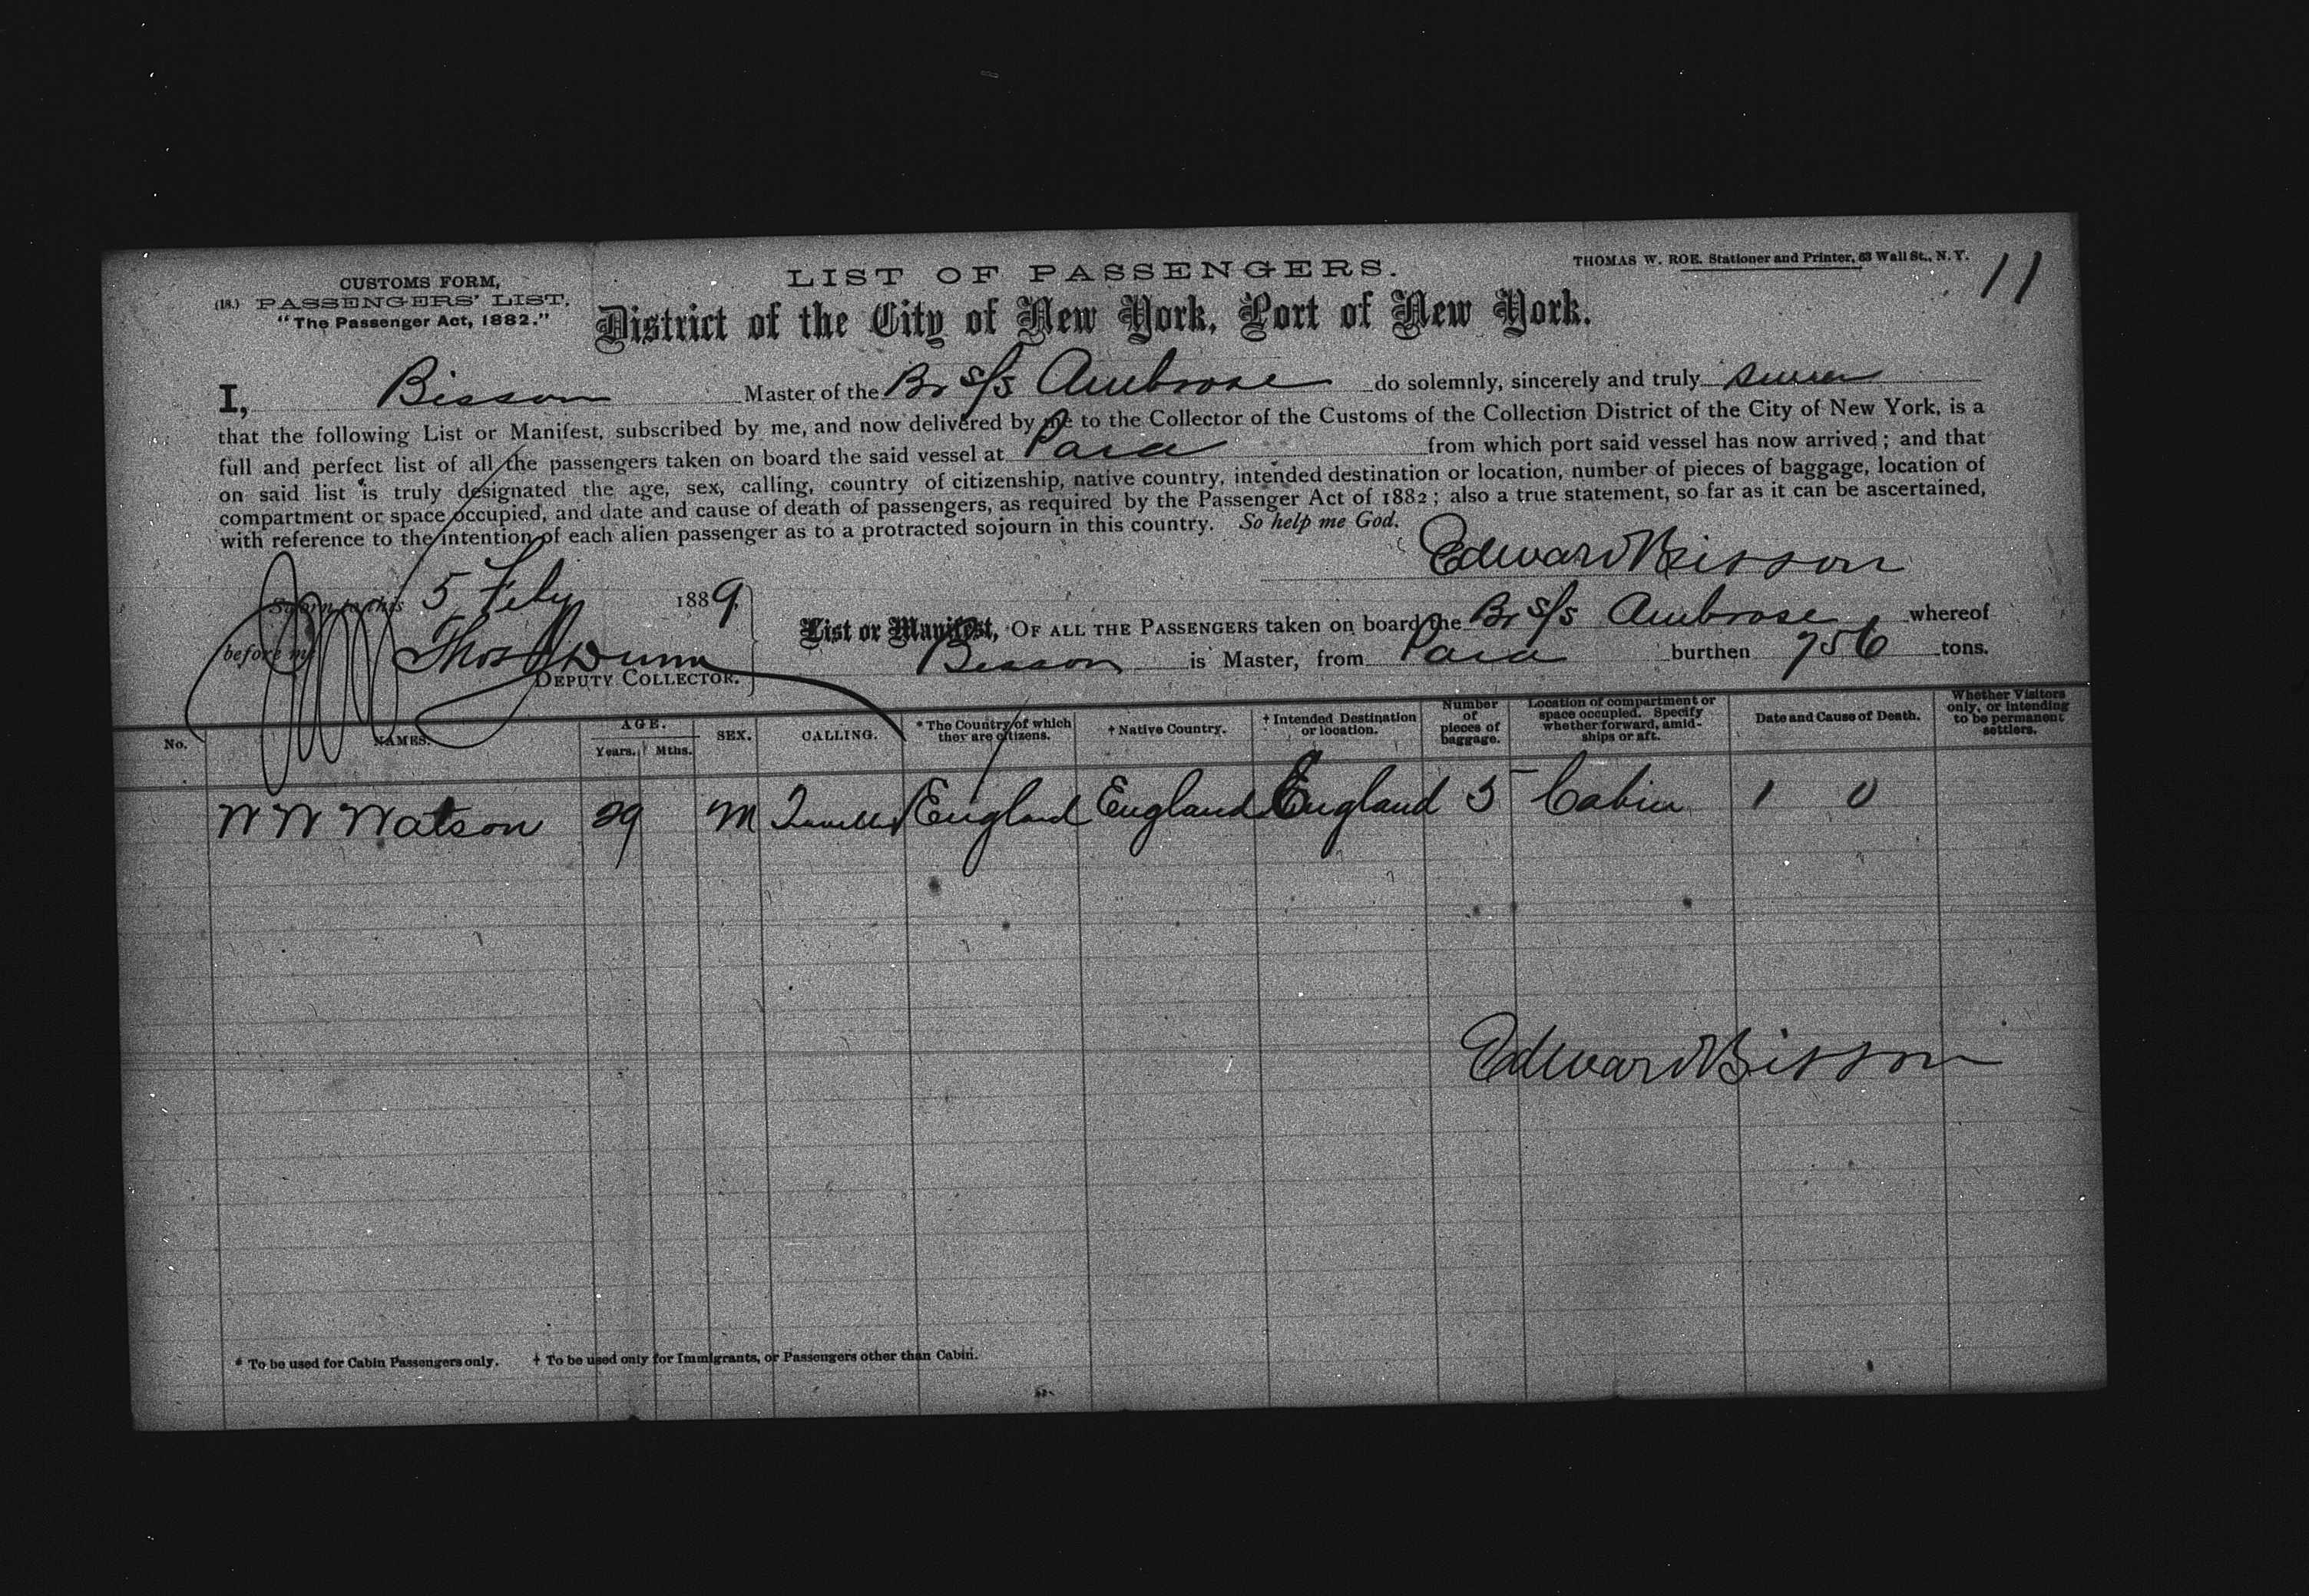 CUSTOMS FORM,
(18.) PASSENGERS' LIST.
"The Passenger Act, 1882."
LIST OF PASSENGERS.
THOMAS W. ROE. Stationer and Printer, 63 Wall St., N. Y.
11
District of the City of New York, Port of New York.
I, Bisson Master of the Br s/s Ambrose do solemnly, sincerely and truly swear
that the following List or Manifest, subscribed by me, and now delivered by me to the Collector of the Customs of the Collection District of the City of New York, is a
full and perfect list of all the passengers taken on board the said vessel at Para from which port said vessel has now arrived; and that
on said list is truly designated the age, sex, calling, country of citizenship, native country, intended destination or location, number of pieces of baggage, location of
compartment or space occupied, and date and cause of death of passengers, as required by the Passenger Act of 1882; also a true statement, so far as it can be ascertained,
with reference to the intention of each alien passenger as to a protracted sojourn in this country. So help me God.
Edward Bisson
Sworn to this 5 Feby 1889,
before me Thos Dunn
DEPUTY COLLECTOR.
List or Manifest, OF ALL THE PASSENGERS taken on board the Br s/s Ambrose whereof
Bisson is Master, from Para burthen 956 tons.
No.
NAMES.
AGE.
Years.
Mths.
SEX.
CALLING.
* The Country of which
they are citizens.
† Native Country.
† Intended Destination
or location.
Number
of
pieces of
baggage.
Location of compartment or
space occupied. Specify
whether forward, amid-
ships or aft.
Date and Cause of Death.
Whether Visitors
only, or intending
to be permanent
settlers.
W W Watson 29 M England England England 5 Cabin 1 0
Edward Bisson
* To be used for Cabin Passengers only. † To be used only for Immigrants, or Passengers other than Cabin.